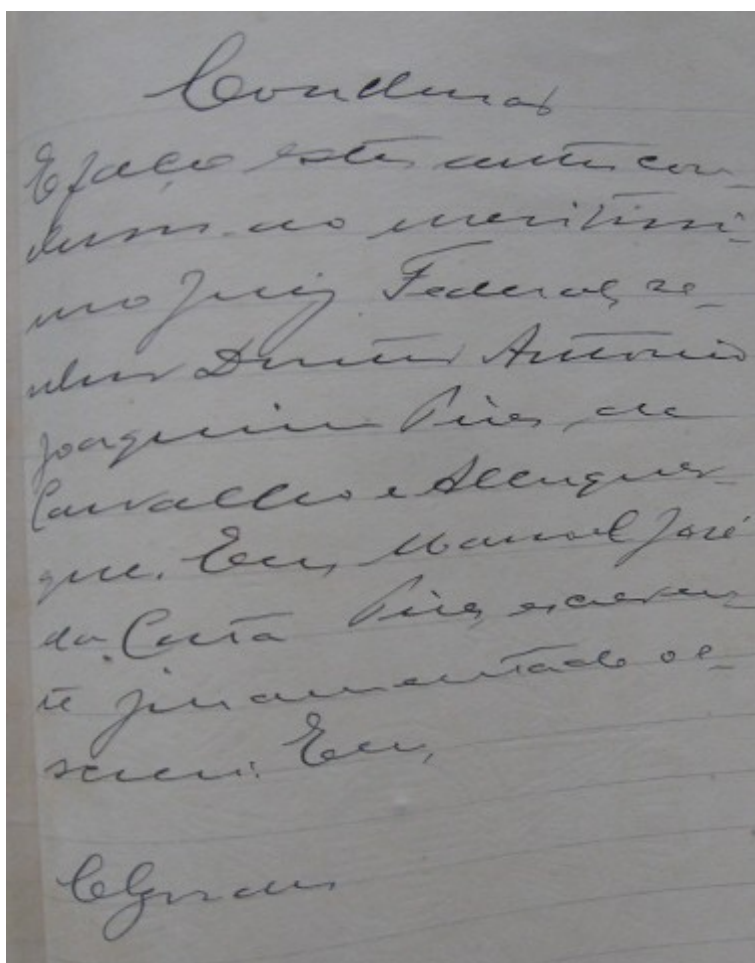 Conclusos
E faço estes autos con-
clusos ao meritissi-
mo Juiz Federal, se-
nhor Doutor Antonio
Joaquim Pires de
Carvalho e Albuquer-
que. Eu, Manoel José
da Costa Pires, escreven-
te juramentado o es-
crevi. Eu,